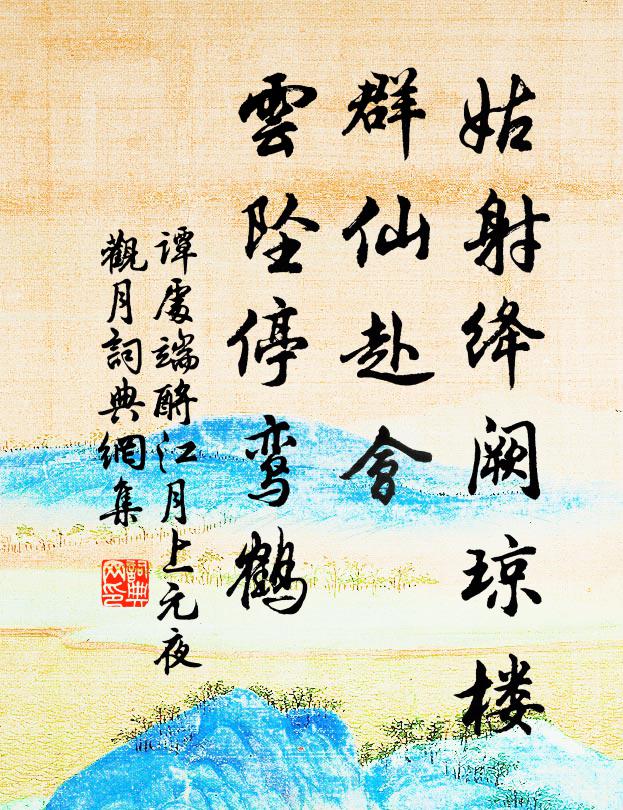 姑射绛阙琼楼
群仙赴會
雲坠停鸾鹤
谭處端酹江月上元夜
觀月詞典網集
詞典网印